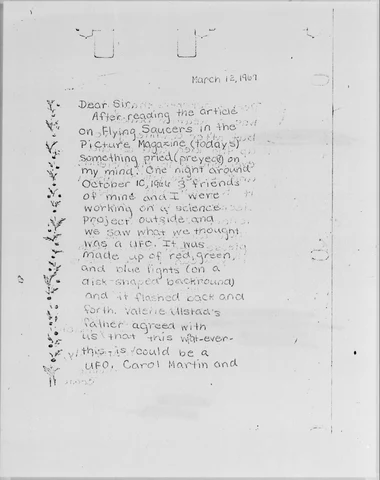 March 12, 1967
Dear Sir,
After reading the article
on Flying Saucers in the
Picture Magazine (todays)
something pried (preyed) on
my mind. One night around
October 10, 1966 3 friends
of mine and I were
working on a science
project outside and
we saw what we thought
was a UFO. It was
made up of red, green,
and blue lights (on a
disk-shaped backround)
and it flashed back and
forth. Valerie Ulstad's
father agreed with
us that this what-ever-
this-is could be a
UFO. Carol Martin and